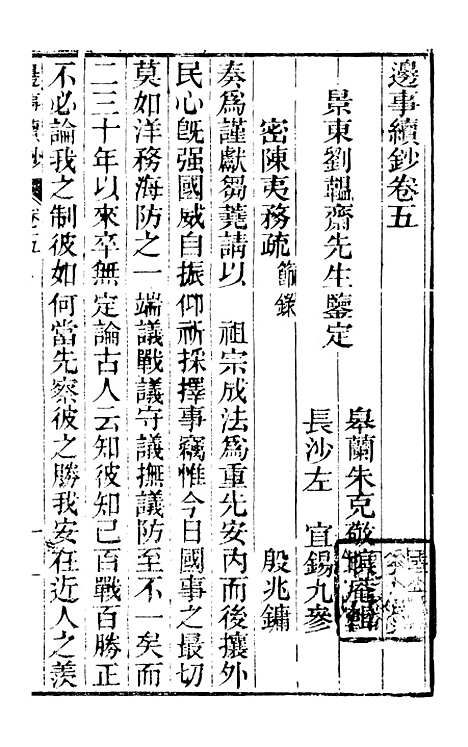 邊事續鈔卷五
景東劉韞齋先生鑒定
皋蘭朱克敬暝庵輯
長沙左 宜錫九參
密陳夷務疏 節錄
殷兆鏞
奏爲謹獻芻蕘請以 祖宗成法爲重先安內而後攘外
民心旣强國威自振仰祈採擇事竊惟今日國事之最切
莫如洋務海防之一端議戰議守議撫議防至不一矣而
二三十年以來卒無定論古人云知彼知己百戰百勝正
不必論我之制彼如何當先察彼之勝我安在近人之羨
邊事續鈔 卷五 一